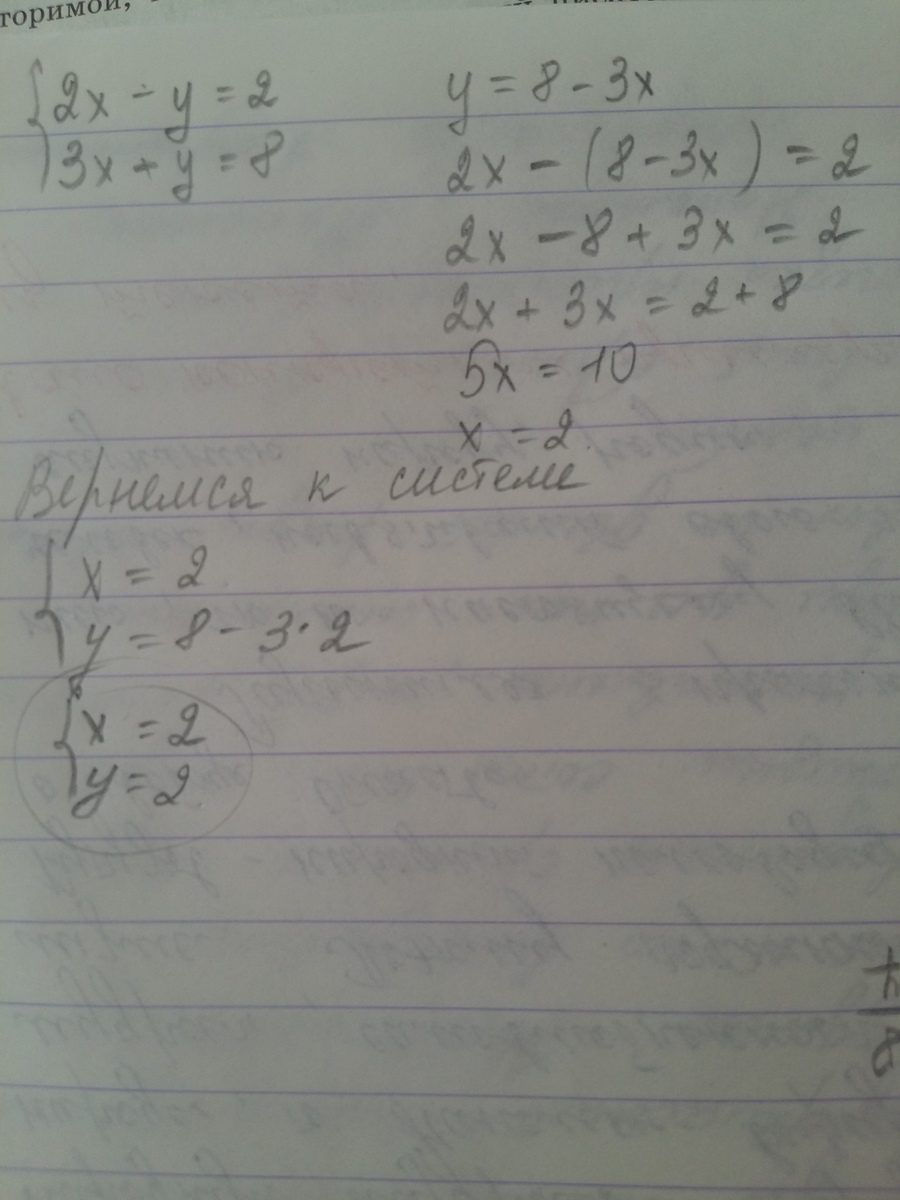 торимой,
2x - y = 2
3x + y = 8
y = 8 - 3x
2x - (8 - 3x) = 2
2x - 8 + 3x = 2
2x + 3x = 2 + 8
5x = 10
x = 2
Вернемся к системе
x = 2
y = 8 - 3·2
x = 2
y = 2
8